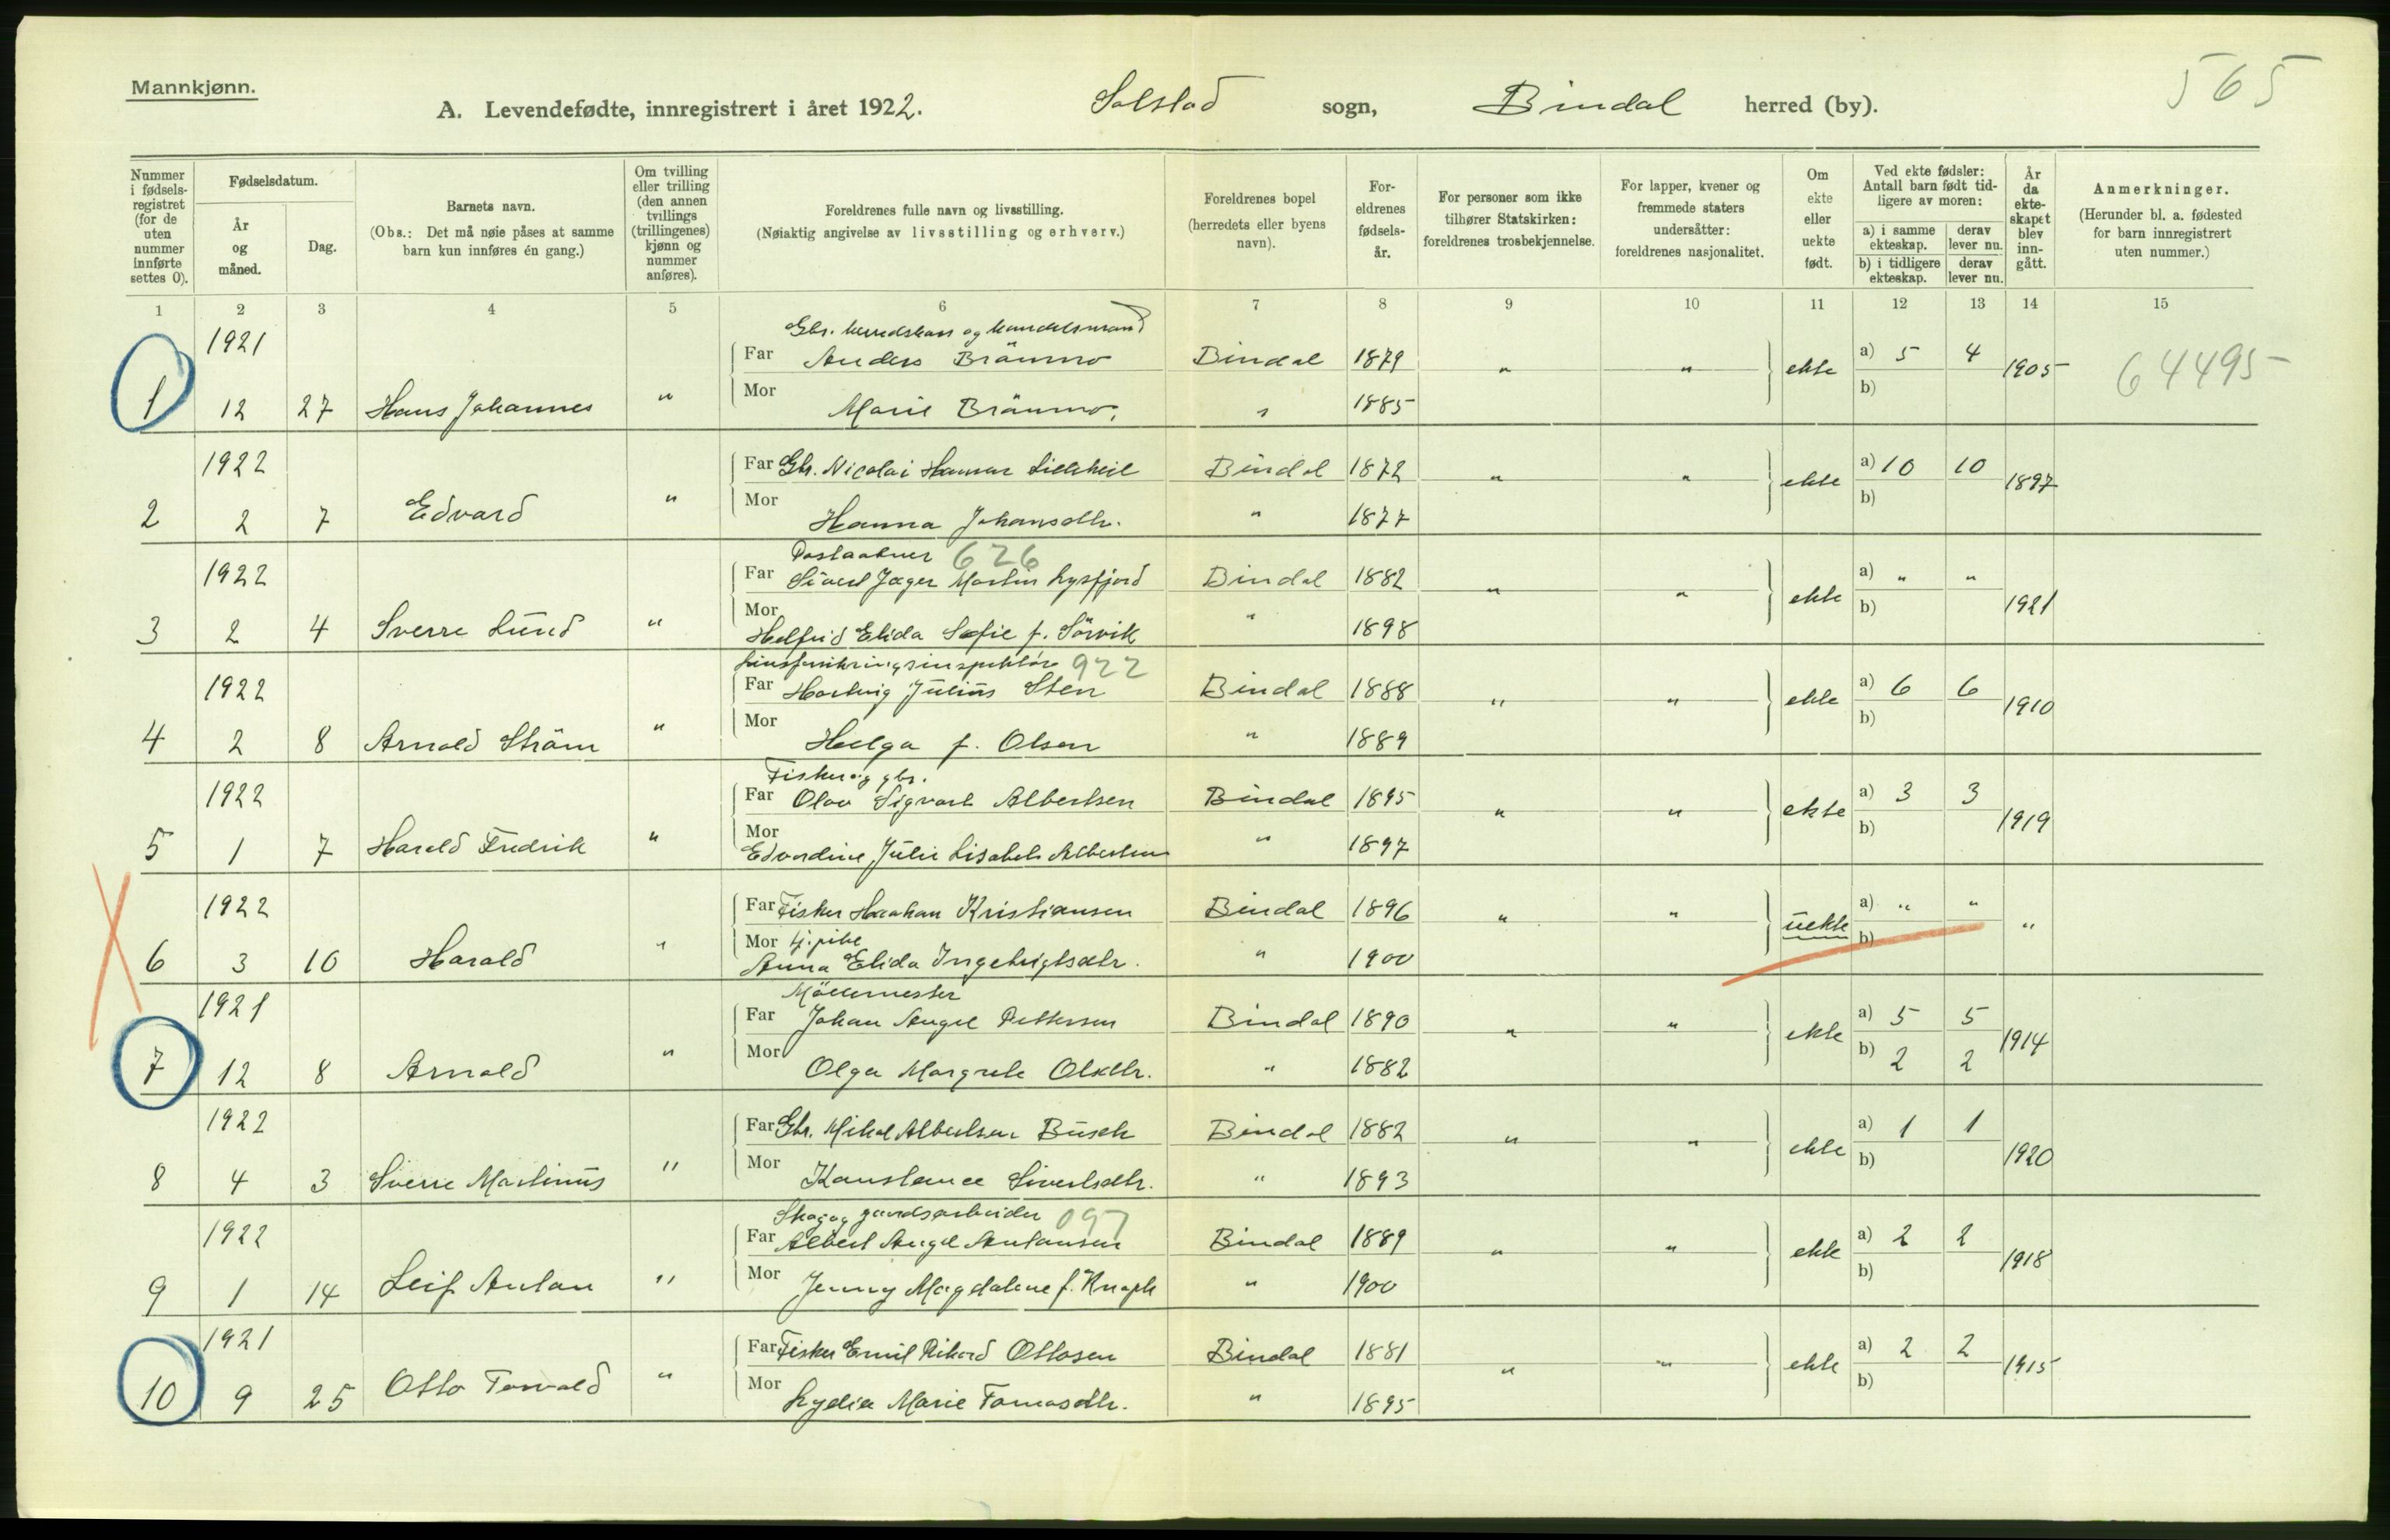 Mannkjønn.
565
A. Levendefødte, innregistrert i året 1922. Solstad sogn, Bindal herred (by).
Nummer i fødsels-registret (for de uten nummer innførte settes 0).
Fødselsdatum.
År og måned.
Dag.
Barnets navn.
(Obs.: Det må nøie påses at samme barn kun innføres én gang.)
Om tvilling eller trilling (den annen tvillings (trillingenes) kjønn og nummer anføres).
Foreldrenes fulle navn og livsstilling.
(Nøiaktig angivelse av livsstilling og erhverv.)
Foreldrenes bopel
(herredets eller byens navn).
For-eldrenes fødsels-år.
For personer som ikke tilhører Statskirken: foreldrenes trosbekjennelse.
For lapper, kvener og fremmede staters undersåtter: foreldrenes nasjonalitet.
Om ekte eller uekte født.
Ved ekte fødsler: Antall barn født tid-ligere av moren:
a) i samme ekteskap.
derav lever nu.
b) i tidligere ekteskap.
derav lever nu.
År da ekte-skapet blev inn-gått.
Anmerkninger.
(Herunder bl. a. fødested for barn innregistrert uten nummer.)
1 2 3 4 5 6 7 8 9 10 11 12 13 14 15
Gbr. herredskass og handelsmand
1921 Far Anders Brännmo Bindal 1879 " " ekte a) 5 4 1905 64495
1 12 27 Hans Johannes " Mor Marie Brännmo, " 1885 b)
1922 Far Gbr. Nicolai Hansen Bindal 1872 " " ekte a) 10 10 1897
2 2 7 Edvard " Mor Hanna Johansdtr. " 1877 b)
Postaabner 626
1922 Far Sivert Jæger Martin Lysfjord Bindal 1882 " " ekte a) " " 1921
3 2 4 Sverre Lund " Mor Helfrid Elida Sofie f. Sörvik " 1898 b)
922
1922 Far Hartvig Julius Sten Bindal 1888 " " ekte a) 6 6 1910
4 2 8 Arnold Ström " Mor Helga f. Olsen " 1889 b)
Fisker og gbr.
1922 Far Olav Sigvart Albertsen Bindal 1895 " " ekte a) 3 3 1919
5 1 7 Harald Fredrik " Mor Edvardine Julie Lisabet Albertsen " 1897 b)
1922 Far Fisker Haakan Kristiansen Bindal 1896 " " uekte a) " " "
6 3 10 Harald " Mor tj.pike Anna Elida Ingebrigtsdtr. " 1900 b)
Möllemester
1921 Far Johan Angel Pettersen Bindal 1890 " " ekte a) 5 5 1914
7 12 8 Arnold " Mor Olga Margrete Olsdtr. " 1882 b) 2 2
1922 Far Gbr. Mikal Albertsen Busch Bindal 1882 " " ekte a) 1 1 1920
8 4 3 Sverre Martinus " Mor Konstance Sivertsdtr. " 1893 b)
Skog og gaardsarbeider 097
1922 Far Albert Angel Antonsen Bindal 1889 " " ekte a) 2 2 1918
9 1 14 Leif Anton " Mor Jenny Magdalene f. Knoph " 1900 b)
1921 Far Fisker Emil Rikard Ottosen Bindal 1881 " " ekte a) 2 2 1915
10 9 25 Otto Torvald " Mor Lydia Marie Tomasdtr. " 1895 b)